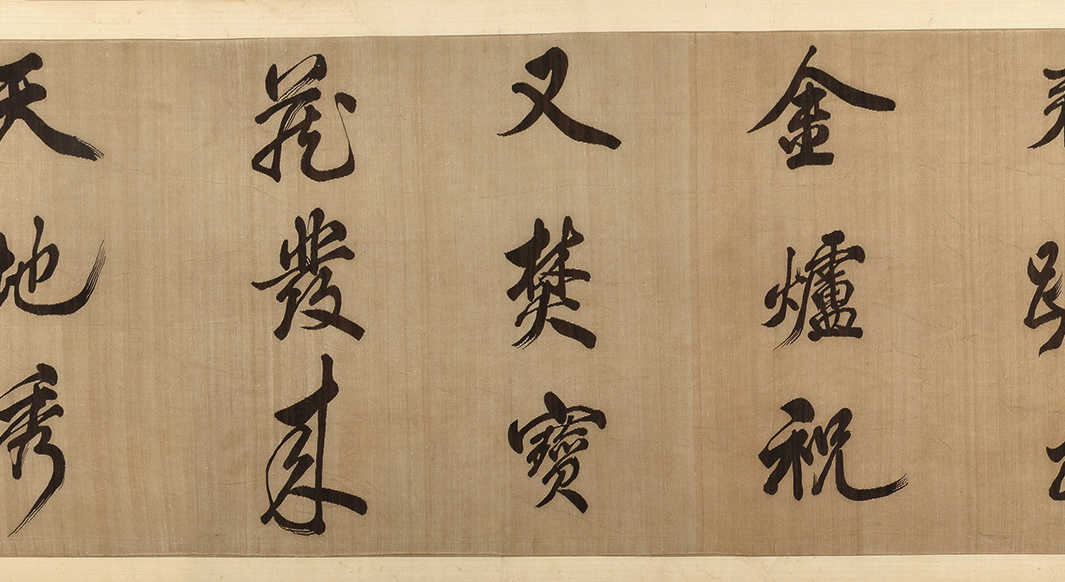 金爐祝
又焚寶
藏發來
天地秀